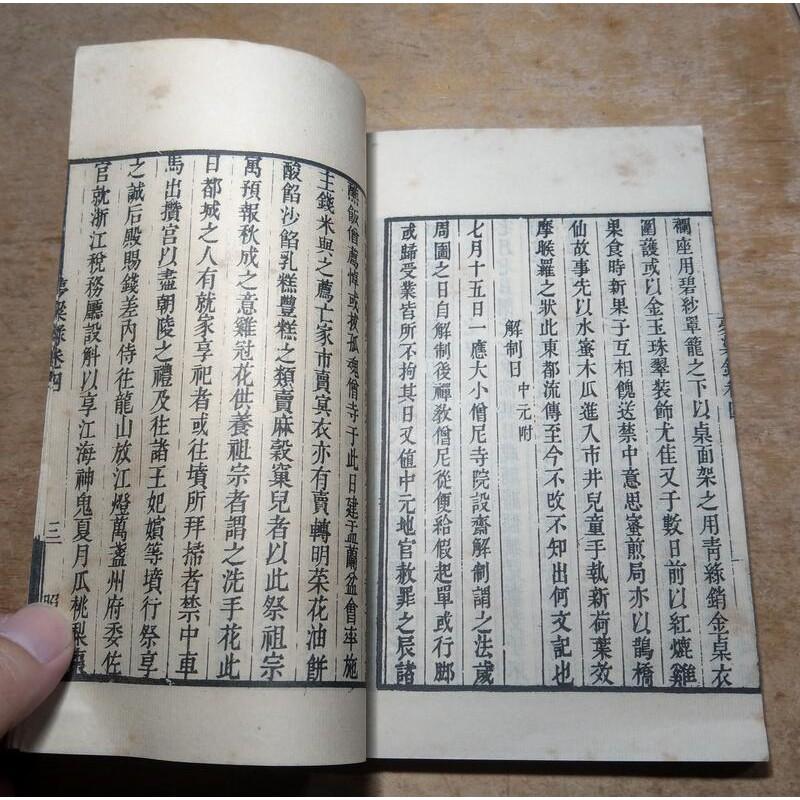 夢粱錄卷四
襴座用碧紗罩籠之下以桌面架之用青綠銷金桌衣
圍護或以金玉珠翠裝飾尤佳又于數日前以紅熝雞
果食時新果子互相餽送禁中意思蜜煎局亦以鵲橋
仙故事先以水蜜木瓜進入市井兒童手執新荷葉效
摩睺羅之狀此東都流傳至今不改不知出何文記也
解制日 中元附
七月十五日一應大小僧尼寺院設齋解制謂之法歲
周圓之日自解制後禪教僧尼從便給假起單或行脚
或歸受業皆所不拘其日又值中元地官赦罪之辰諸
醮飯僧薦悼或拔孤魂僧寺于此日建盂蘭盆會率施
主錢米與之薦亡家市賣冥衣亦有賣轉明菜花油餅
酸餡沙餡乳糕豐糕之類賣麻穀窠兒者以此祭祖宗
寓預報秋成之意雞冠花供養祖宗者謂之洗手花此
日都城之人有就家享祀者或往墳所拜掃者禁中車
馬出攢宮以盡朝陵之禮及往諸王妃嬪等墳行祭享
之誠后殿賜錢差內侍往龍山放江燈萬盞州府委佐
官就浙江稅務廳設斛以享江海神鬼夏月瓜桃梨棗
夢粱錄卷四 三